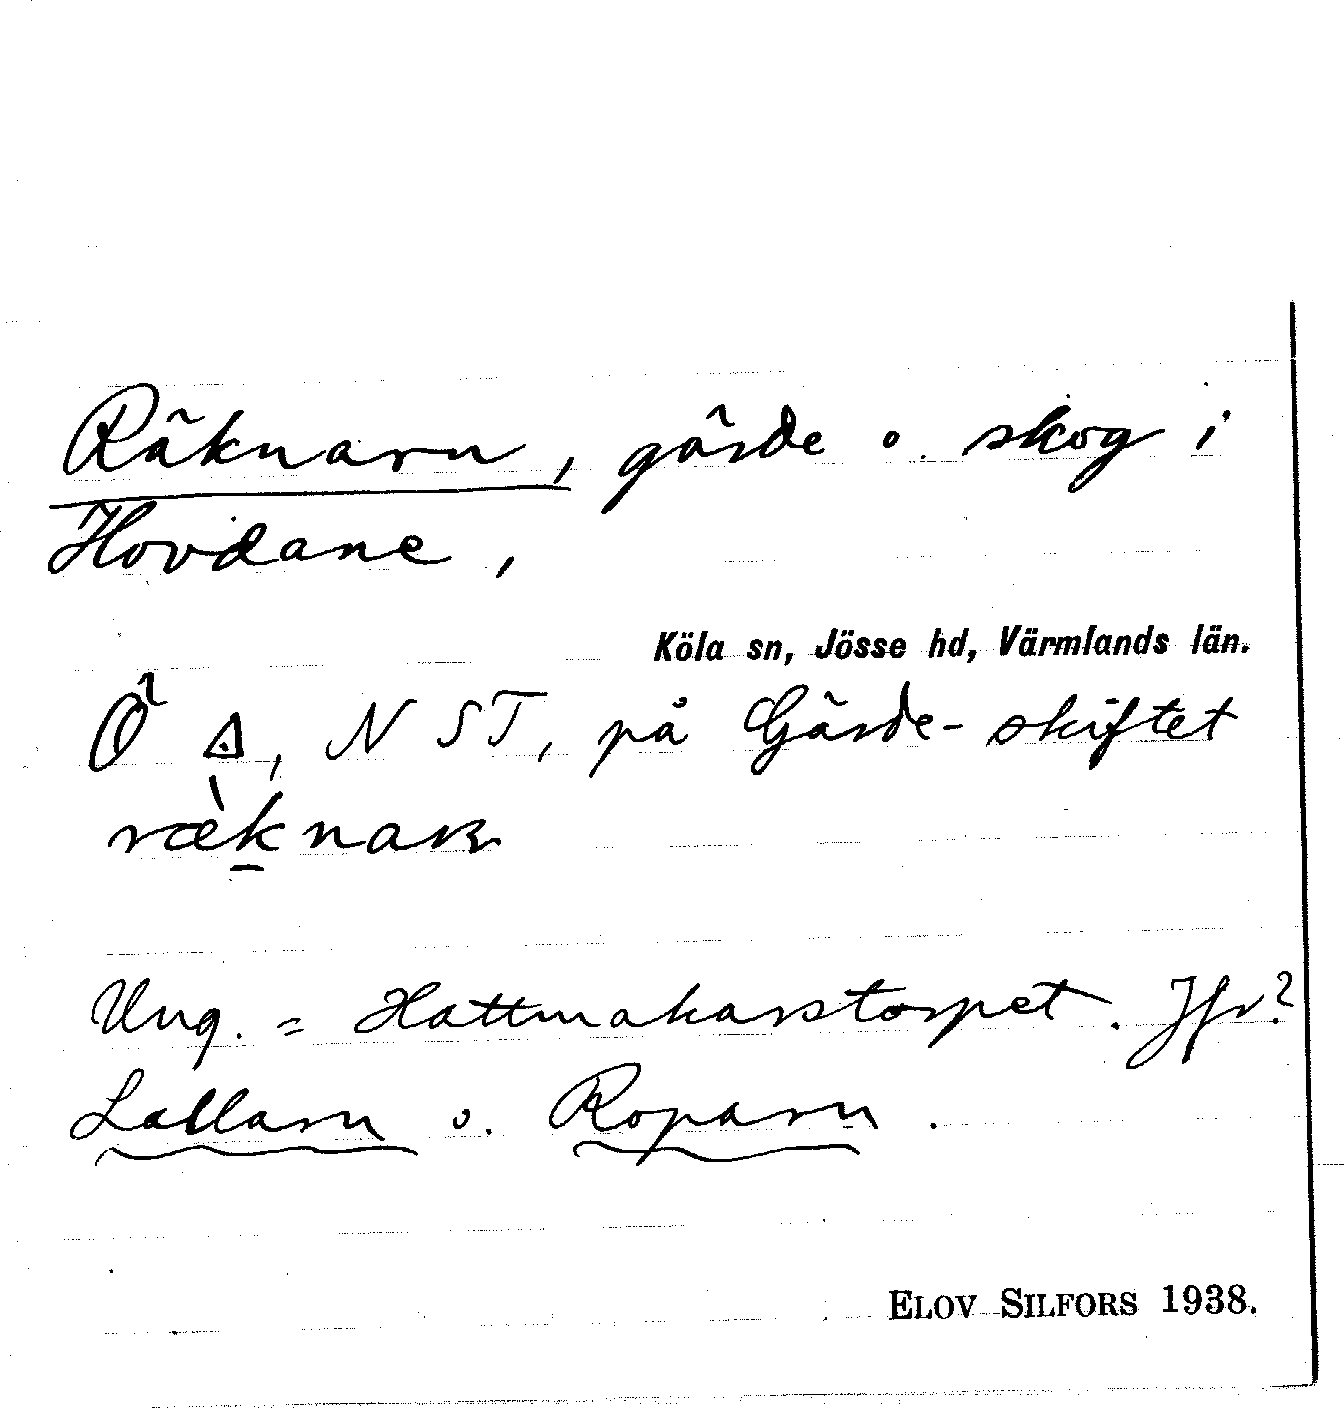 Räknarn, gärde o. skog i
Hovdane,
Köla sn, Jösse hd, Värmlands län.
Ö Δ, N ST, på Gärde-skiftet
ræ̀k̲naʀ
Ung. = Hattmakarstorpet. Jfr?
Lallarn o. Roparn.
ELOV SILFORS 1938.